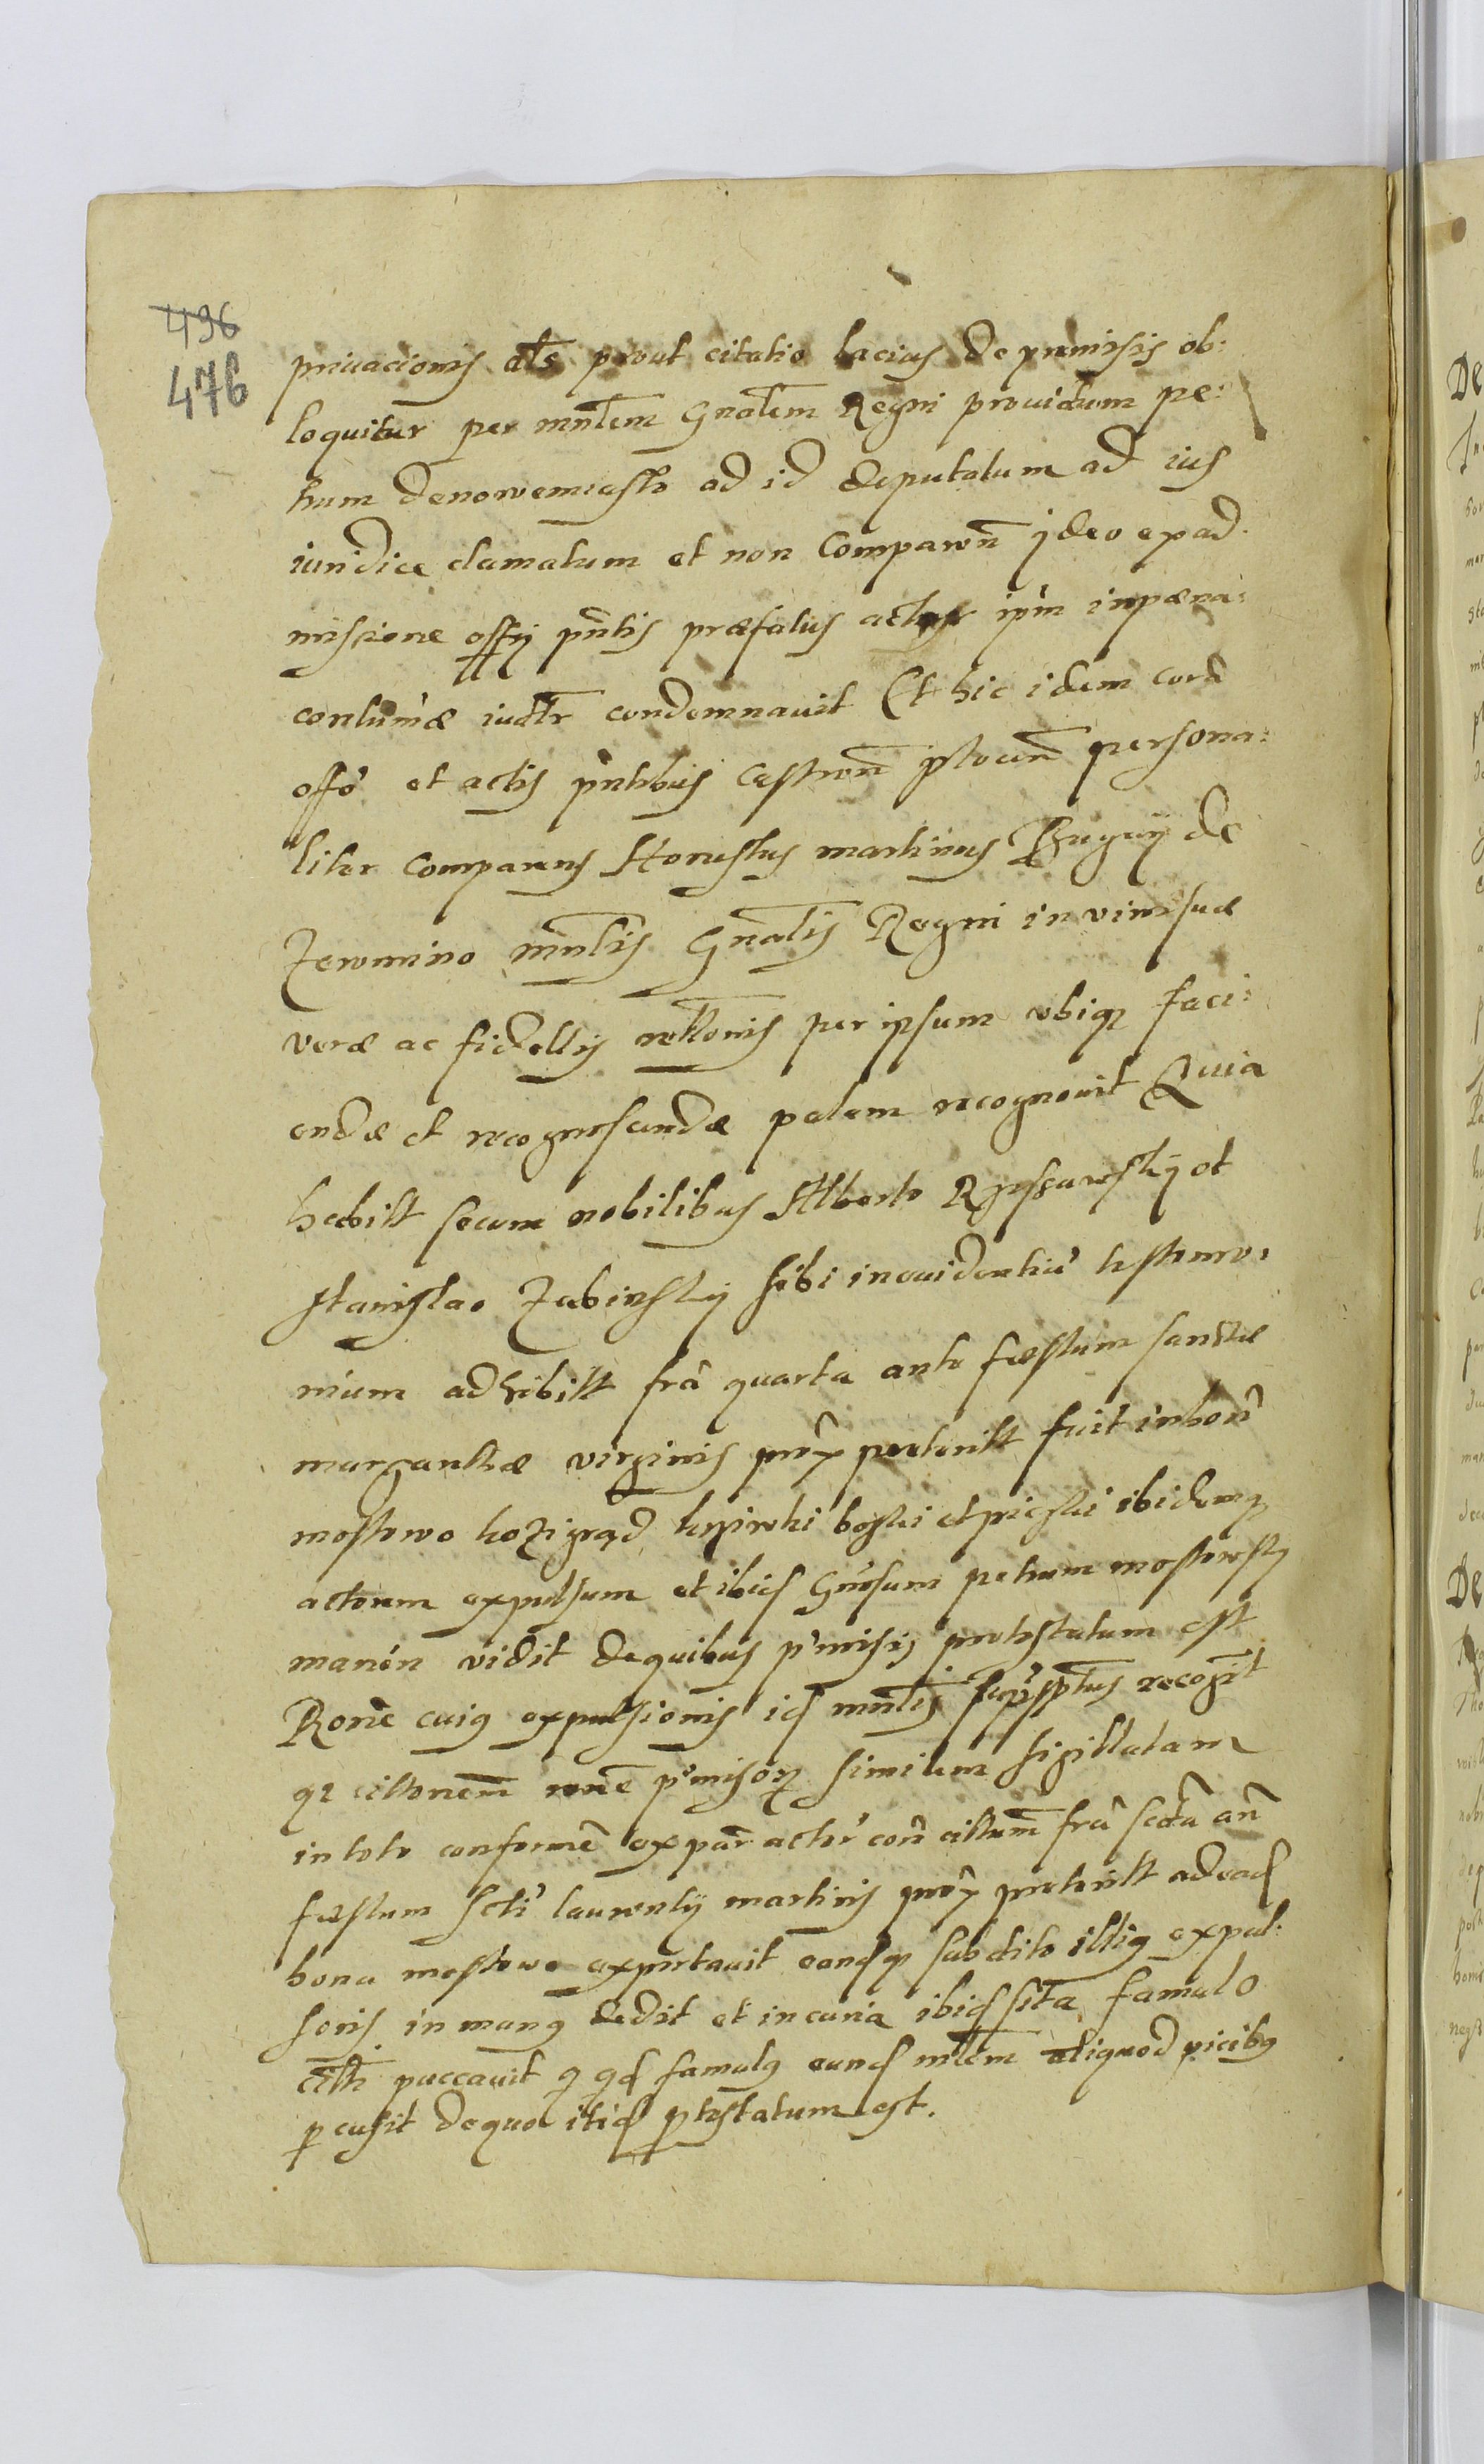 496
476
priuacionis als prout citatio lacius de premissis ob:
loquitur per mnlem Gnalem Regni prouidum pe:
trum denowemiasto ad id deputatum ad ius
iuridice clamatum et non Comparen jdeo ex ad:
missione offij pntis præfatus actor ipm in pæna
contumæ iudlr condemnauit Et hic idem cora
offo et actis pntibus Castren plocen persona:
liter Comparens Honestus martinus de
Zeromino mnlis Gnalis Regni in vim suæ
veræ ac fidelis reltonis per ipsum vbiqz faci:
endæ et recognoscendæ palam recognouit Quia
habitt secum nobilibus Alberto et
stanislao Zabinskij sibi in euidentiu testimo:
nium adhibitt fra quarta ante fæstum sanctæ
margarethæ virginis prox preteritt fuit in bon
mostowo kozigrąd boski et pieski ibidemqz
actorem expulsum et ibid Gnosum petrum mostowsky
manen vidit de quibus pmissis protestatum est
Rone cuiq expulsionis id mnlis suprsptus recognt
qz citonem rone pmisorz similem sigillatam
in toto conforme ex par actor con cittum fra secda an
fæstum scti laurentij martiris prox preteritt ad ead
bona mostowo exportauit eandqz subdito illiq expul:
soris in manq dedit et in curia ibid sita famulo
citti q qd famulq eund mlem aliquod picibq
p cussit de quo itid ptestatum est.